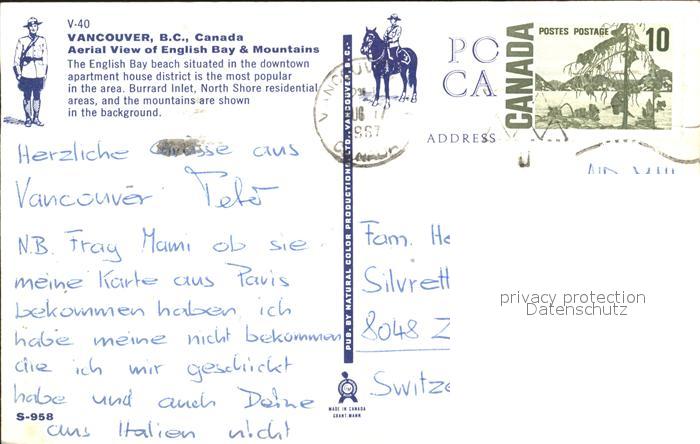 V-40
VANCOUVER, B.C., Canada
Aerial View of English Bay & Mountains
The English Bay beach situated in the downtown
apartment house district is the most popular
in the area. Burrard Inlet, North Shore residential
areas, and the mountains are shown
in the background.
Herzliche Grüsse aus
Vancouver Peter
N.B. Frag Mami ob sie
meine Karte aus Paris
bekommen haben, ich
habe meine nicht bekommen
die ich mir geschickt
habe und auch Deine
aus Italien nicht
S-958
PUB. BY NATURAL COLOR PRODUCTIONS LTD. VANCOUVER, B.C.
MADE IN CANADA
GRANT-MANN
VANCOUVER
1967
CANADA
CANADA
POSTES POSTAGE
10
PO
CA
ADDRESS
Fam. He
Silvrett
8048 Z
Switze
privacy protection
Datenschutz